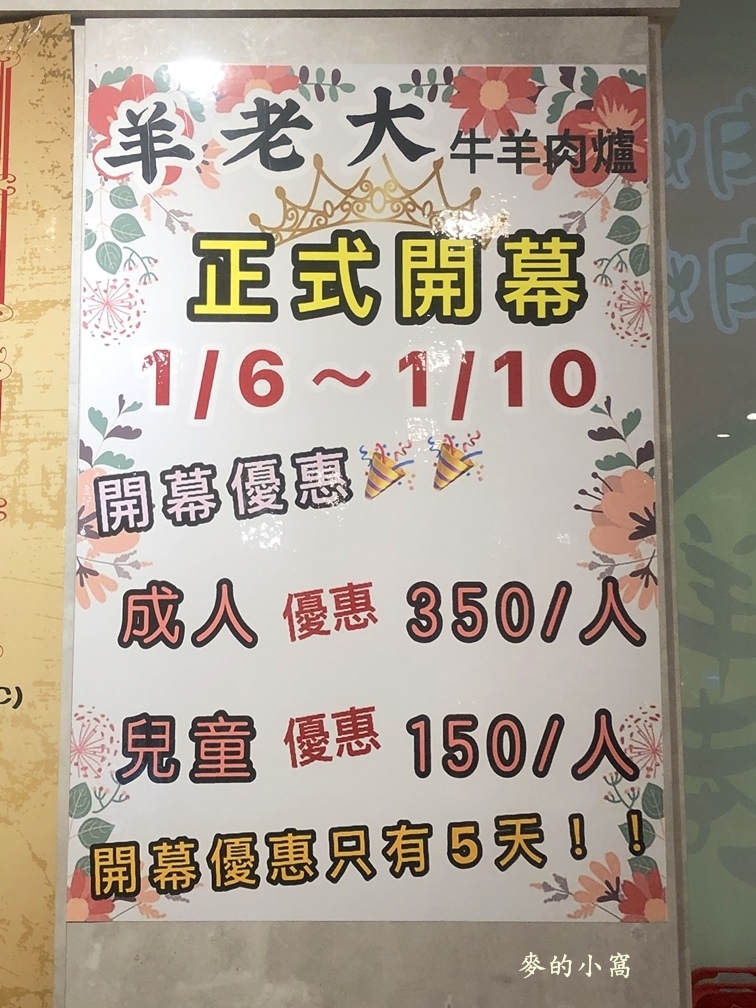 羊老大 牛羊肉爐
正式開幕
1/6～1/10
開幕優惠
成人 優惠 350/人
兒童 優惠 150/人
開幕優惠只有5天！！
C)
麥的小窩